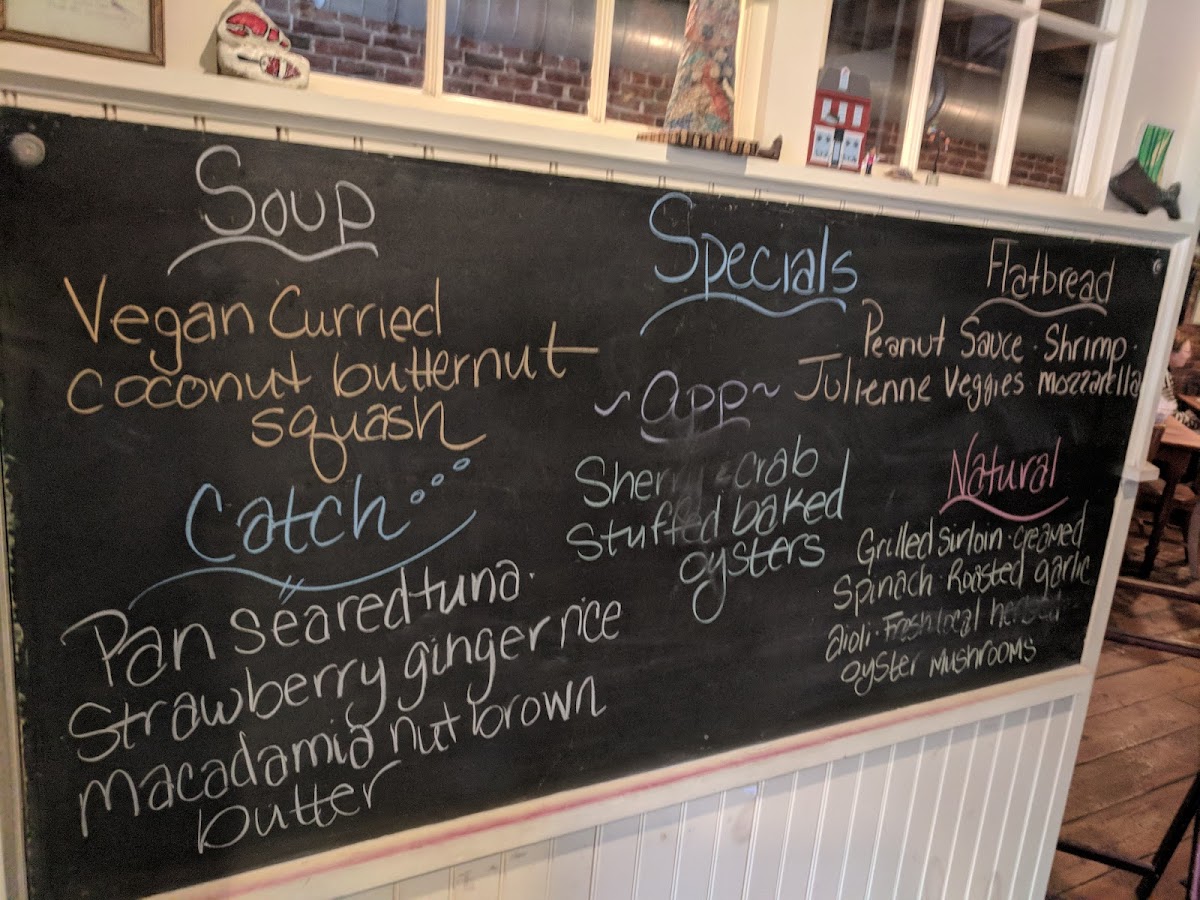 Soup
Vegan Curried
coconut butternut
squash
Catch
Pan seared tuna.
Strawberry ginger rice
macadamia nut brown
butter
Specials
~App~
Sherry & crab
Stuffed baked
oysters
Flatbread
Peanut Sauce · Shrimp ·
Julienne Veggies mozzarella
Natural
Grilled sirloin · creamed
Spinach · Roasted garlic
aioli · Fresh local herbed
oyster mushrooms